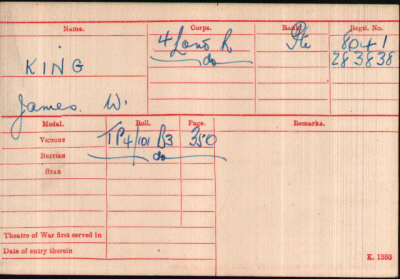 Name. Corps. Rank. Regtl. No.
KING 4 Lond R Pte 8041
do 283838
James. W.
Medal. Roll. Page. Remarks.
VICTORY TP4/101 B3 350
BRITISH do
STAR
Theatre of War first served in
Date of entry therein
K. 1380